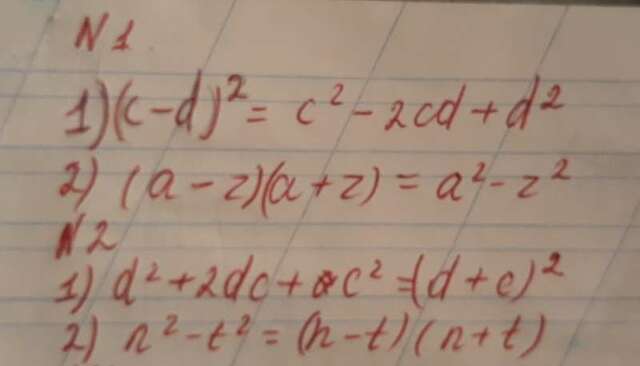 N1
1) (c-d)² = c² - 2cd + d²
2) (a - z)(a + z) = a² - z²
N2
1) d² + 2dc + c² = (d + c)²
2) n² - t² = (n - t)(n + t)